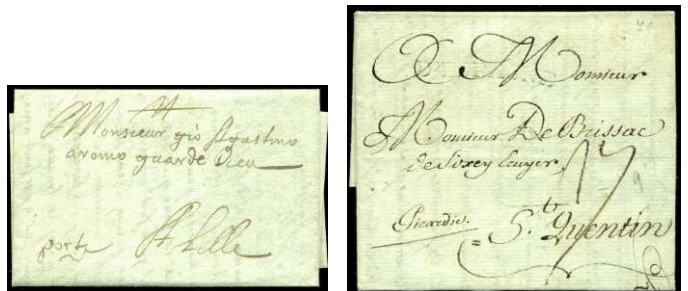 Monsieur gio Agostino
aromo guarde Dieu
porte
Lille
A Monsieur
Monsieur De Brissac
de Sixey Ecuyer
Picardie.
= S.te Quentin